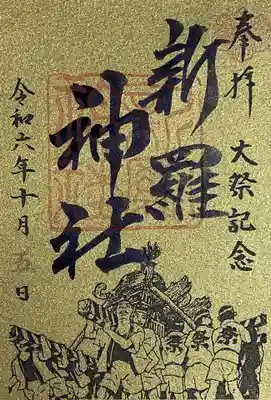 奉拝
大祭記念
新羅
神社
令和六年十月五日
祭
祭